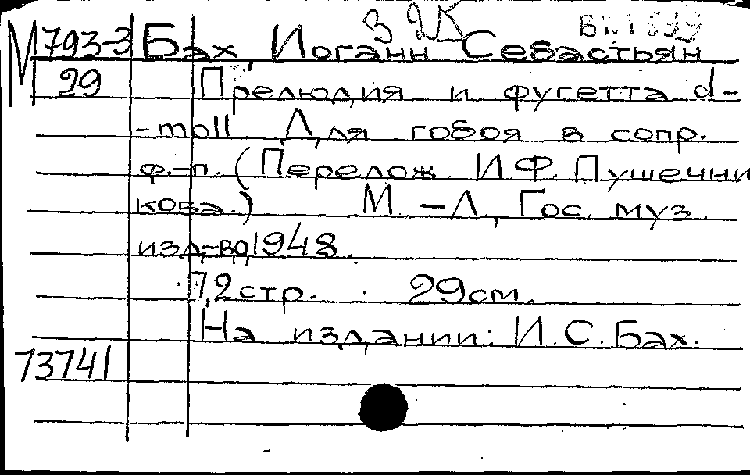 З 2К
М 793-3 Бах, Иоганн Себастьян
29 Прелюдия и фугетта d-
-moll Для гобоя в сопр.
ф.-п. (Перелож. И.Ф. Пушечни
кова.) М.-Л., Гос. муз.
изд-во, 1948.
7,2 стр. 29см.
На издании: И.С. Бах.
73741